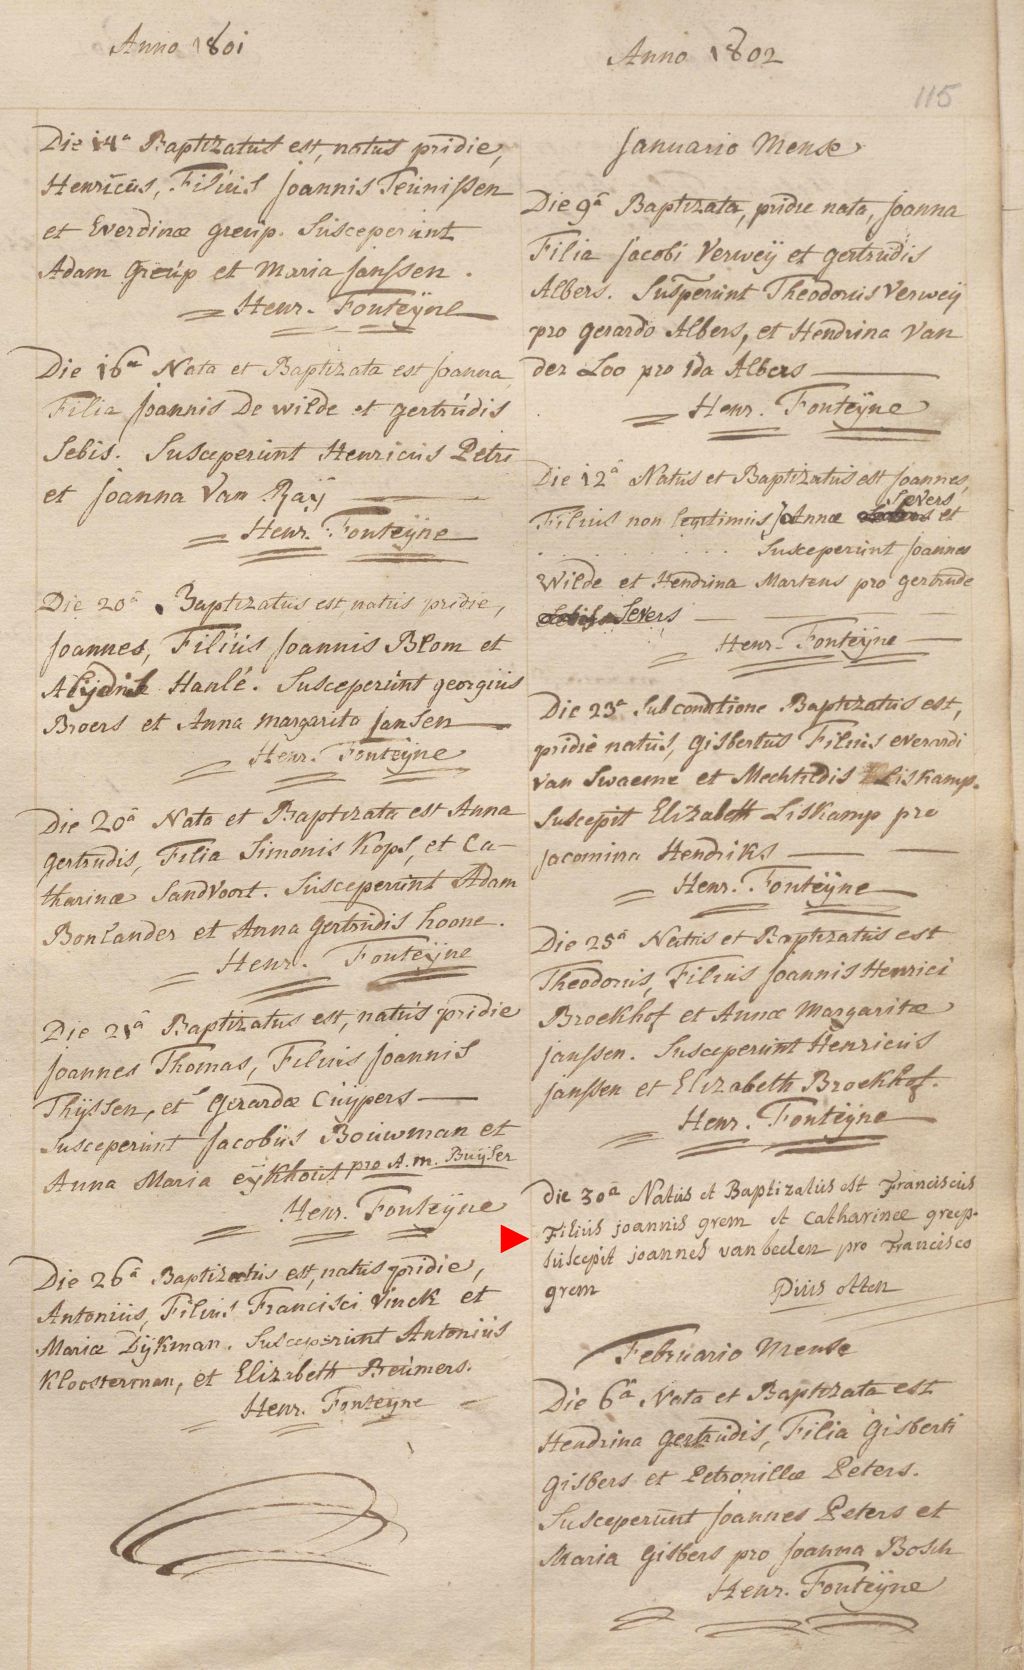 Anno 1801
Die 14a Baptizatus est, natus pridie,
Henricus, Filius Joannis Teunissen
et Everdinæ Greup. Susceperunt
Adam Greup et Maria Janssen.
Henr. Fonteÿne
Die 16a Nata et Baptizata est Joanna
Filia Joannis De Wilde et gertrudis
Sebis. Susceperunt Henricus Petri
et Joanna Van Raÿ
Henr. Fonteÿne
Die 20a Baptizatus est, natus pridie,
Joannes, Filius Joannis Blom et
Hanlé. Susceperunt georgius
Broers et Anna margarita Jansen
Henr. Fonteÿne
Die 20a Nata et Baptizata est Anna
gertrudis, Filia Simonis Kops, et Ca-
tharinæ Sandvoort. Susceperunt Adam
Bonlander et Anna gertrudis hoone.
Henr. Fonteÿne
Die 21a Baptizatus est, natus pridie
Joannes Thomas, Filius Joannis
Thÿssen, et Gerardæ Cuÿpers
Susceperunt Jacobus Bouwman et
Anna Maria eÿkhout pro A. m. Buÿser
Henr. Fonteÿne
Die 26a Baptizatus est, natus pridie,
Antonius, Filius Francisci Vinck et
Mariæ Dÿkman. Susceperunt Antonius
Kloosterman, et Elizabeth Beumers.
Henr. Fonteÿne
Anno 1802
115
Januario Mense
Die 9a Baptizata, pridie nata, Joanna
Filia Jacobi Verweÿ et gertrudis
Albers. Susperunt Theodorus Verweÿ
pro gerardo Albers, et Hendrina Van
der Loo pro Ida Albers
Henr. Fonteÿne
Die 12a Natus et Baptizatus est Joannes,
Severs
Filius non legitimus Annæ et
Susceperunt Joannes
Wilde et Hendrina Martens pro gertrude
Severs
Henr. Fonteÿne
Die 23a Sub conditione Baptizatus est,
pridie natus, Gisbertus Filius everardi
van Swaeme et Mechtildis Liskamp.
Suscepit Elizabeth Liskamp pro
Jacomina Hendriks
Henr. Fonteÿne
Die 25a Natus et Baptizatus est
Theodorus, Filius Joannis Henrici
Broekhof et Annæ Margaritæ
Janssen. Susceperunt Henricus
Janssen et Elizabeth Broekhof.
Henr. Fonteÿne
Die 30a Natus et Baptizatus est Franciscus
Filius joannis grem et Catharinæ greup.
suscepit joannes van beelen pro Francisco
grem
Pius otten
Februario Mense
Die 6a Nata et Baptizata est
Hendrina Gertrudis, Filia Gisberti
Gisbers et Petronillæ Peters.
Susceperunt Joannes Peters et
Maria Gisbers pro Joanna Bosch
Henr. Fonteÿne